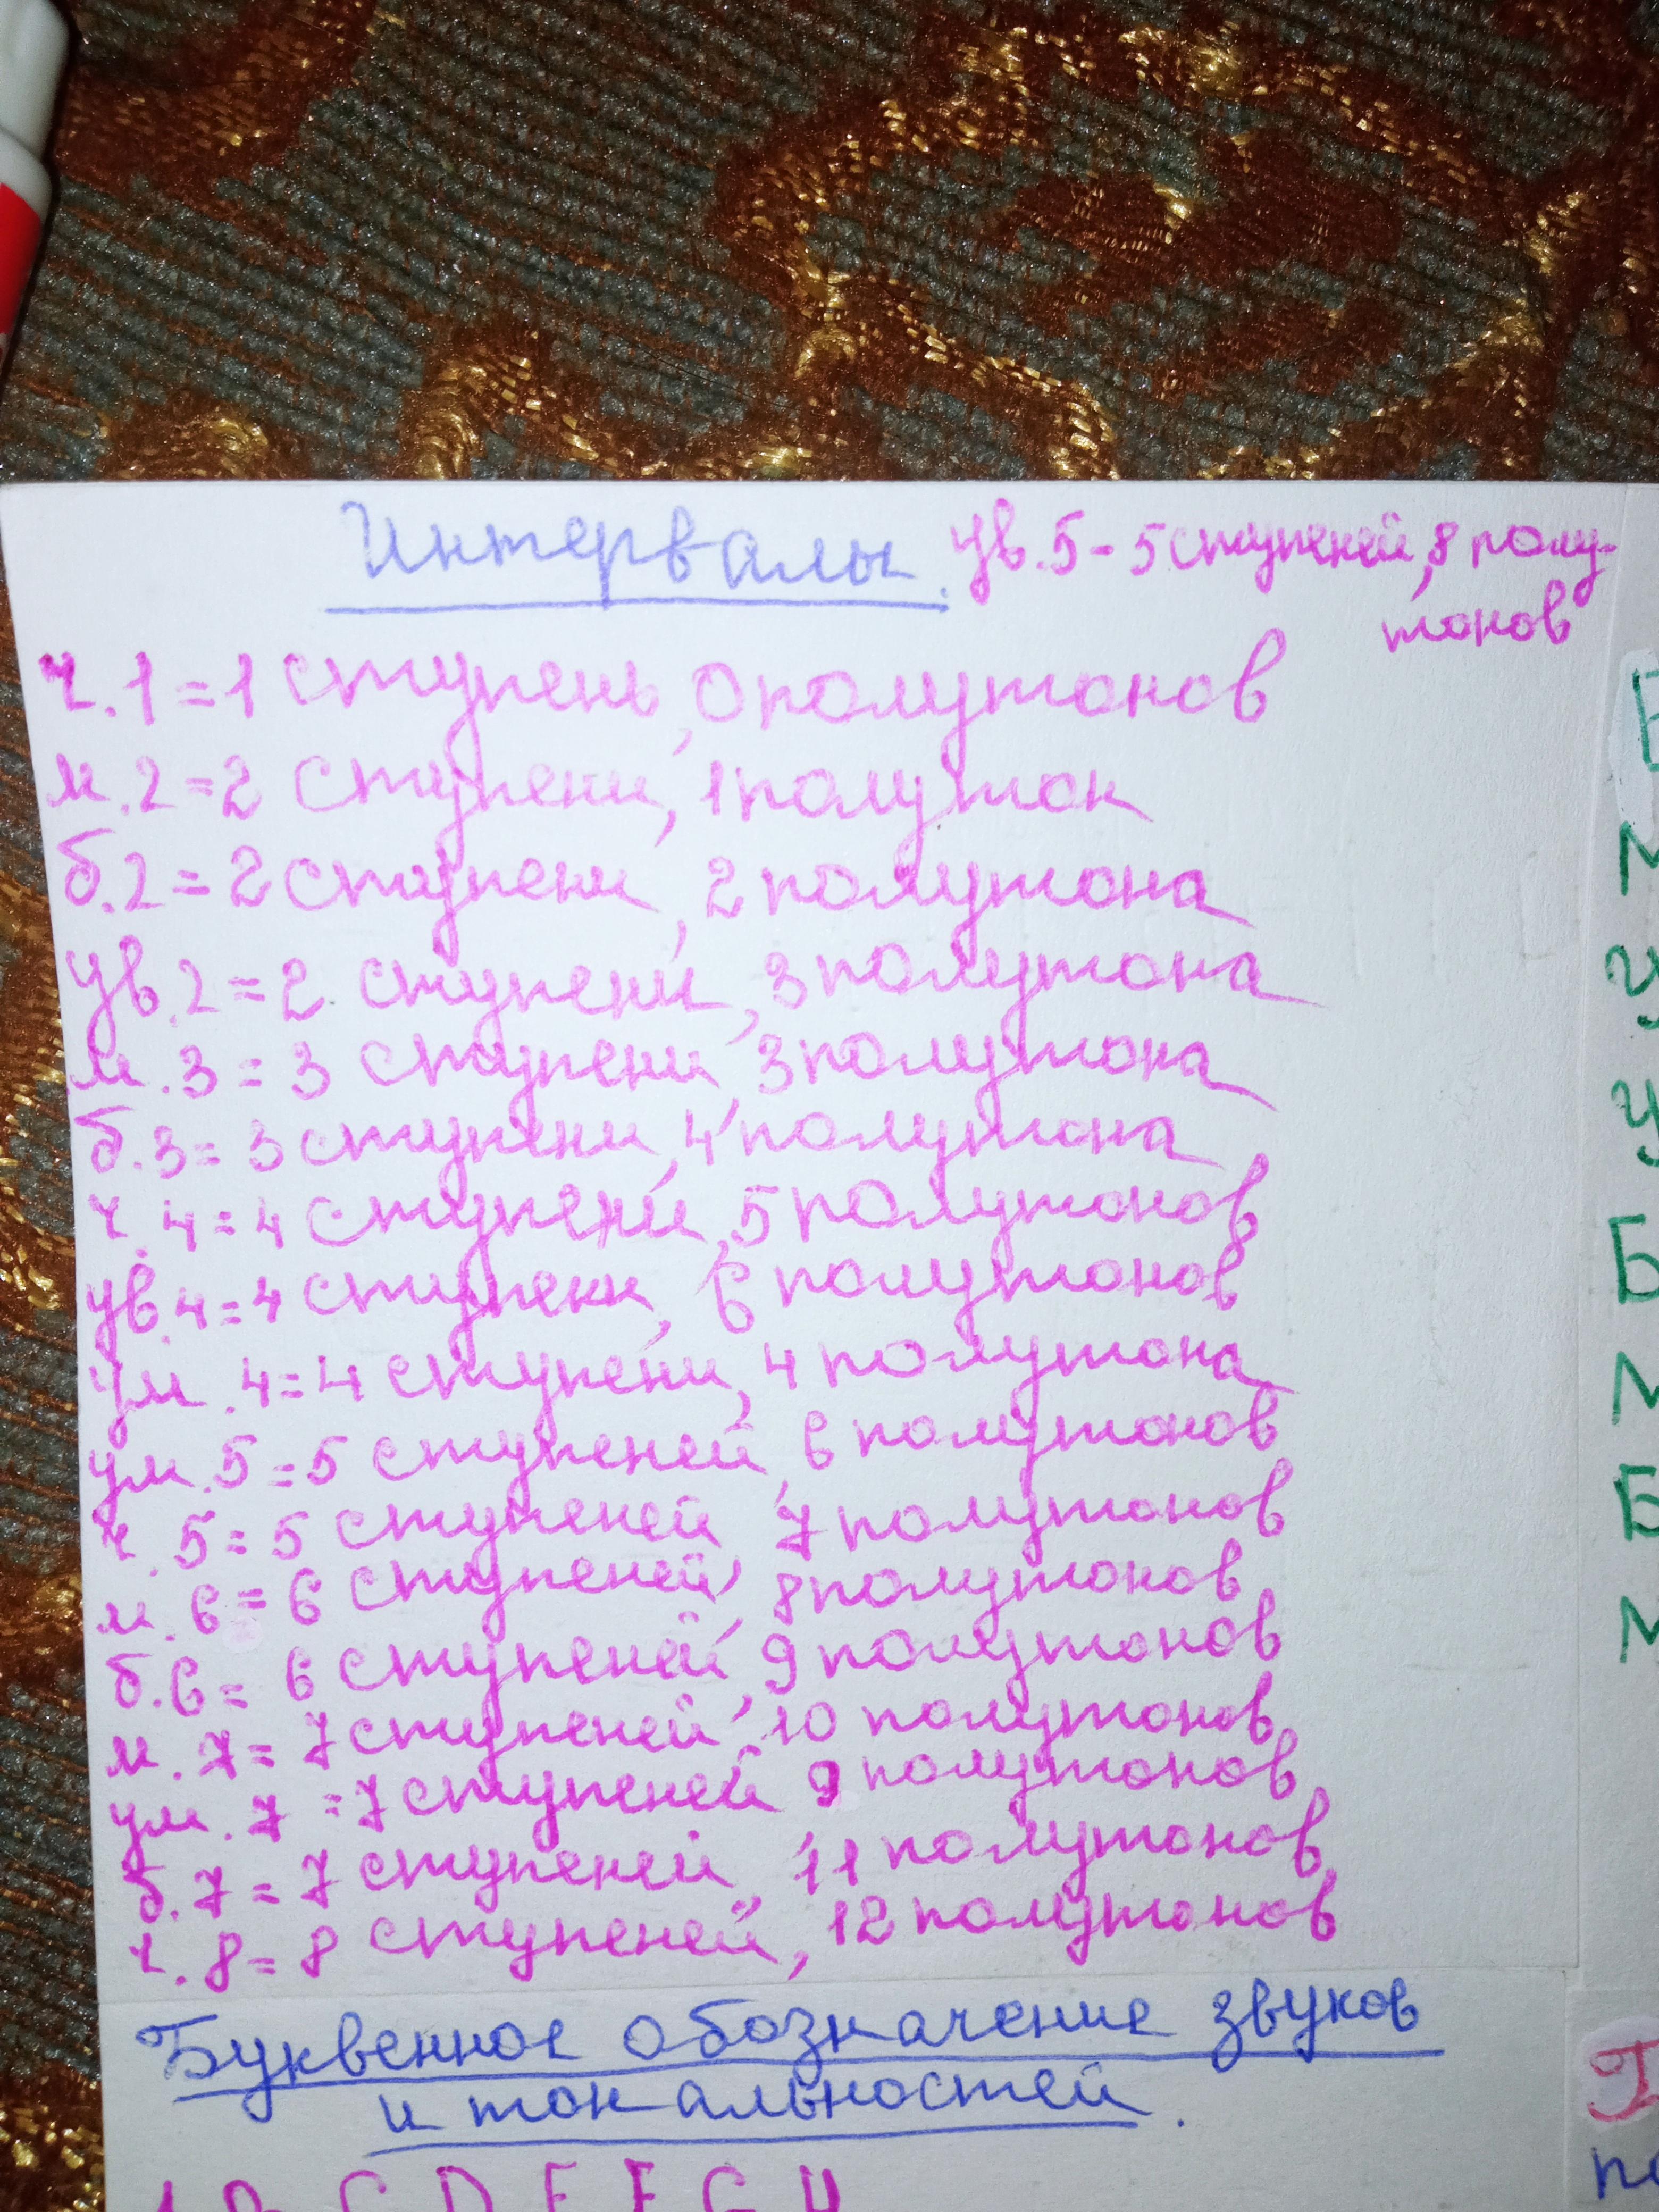 Интервалы. ув.5 - 5 ступеней, 8 полу-
тонов
ч.1 = 1 ступень, 0 полутонов
м.2 = 2 ступени, 1 полутон
б.2 = 2 ступени, 2 полутона
ув.2 = 2 ступени, 3 полутона
м.3 = 3 ступени, 3 полутона
б.3 = 3 ступени, 4 полутона
ч.4 = 4 ступени, 5 полутонов
ув.4 = 4 ступени, 6 полутонов
ум.4 = 4 ступени, 4 полутона
ум.5 = 5 ступеней, 6 полутонов
ч.5 = 5 ступеней, 7 полутонов
м.6 = 6 ступеней, 8 полутонов
б.6 = 6 ступеней, 9 полутонов
м.7 = 7 ступеней, 10 полутонов
ум.7 = 7 ступеней 9 полутонов
б.7 = 7 ступеней, 11 полутонов
ч.8 = 8 ступеней, 12 полутонов
Буквенное обозначение звуков
и тональностей.